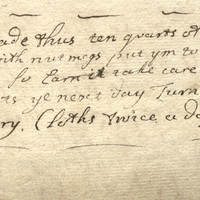 ade thus ten quarts of
ith nutmegs put ym to
so Earn it take care
ts ye next day Turn
ry. Cloths twice a da